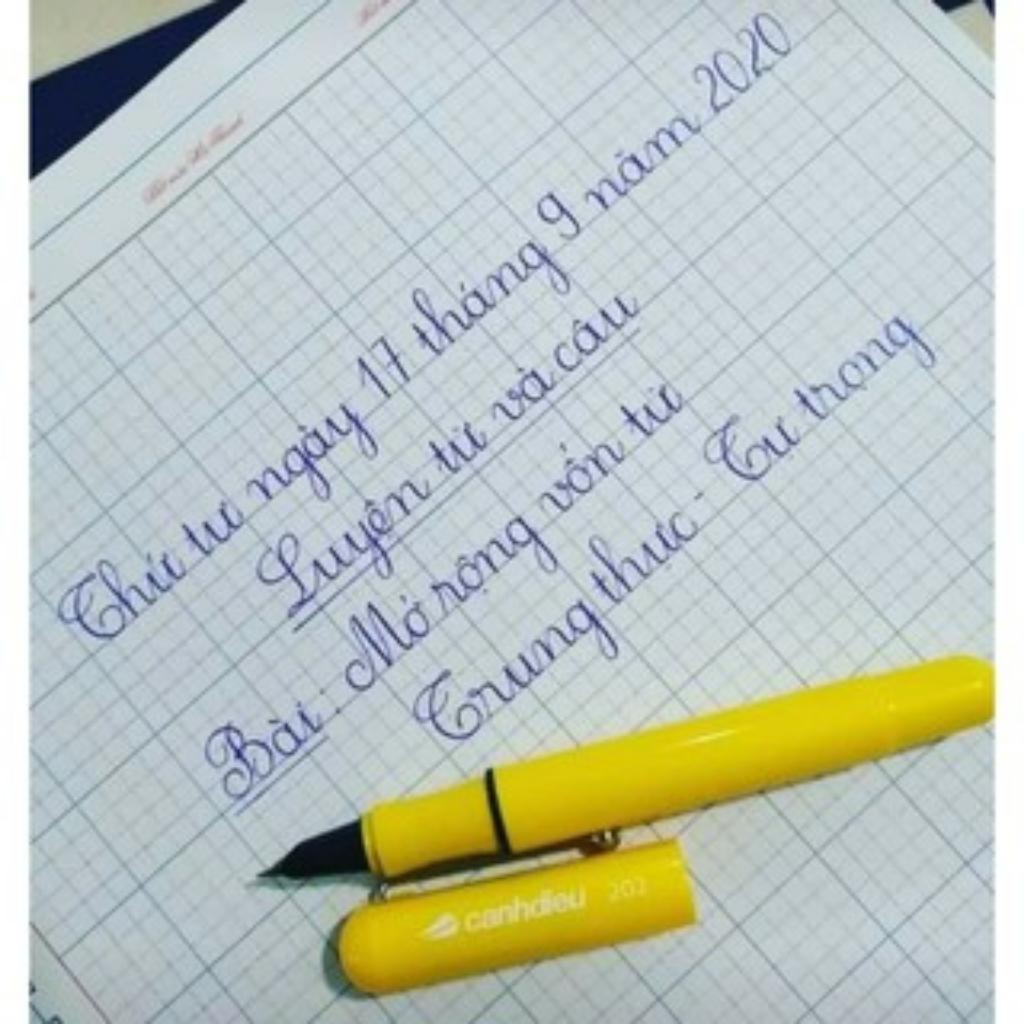 Thứ tư ngày 17 tháng 9 năm 2020
Luyện từ và câu
Bài : Mở rộng vốn từ
Trung thực - Tự trọng
canhdieu 202